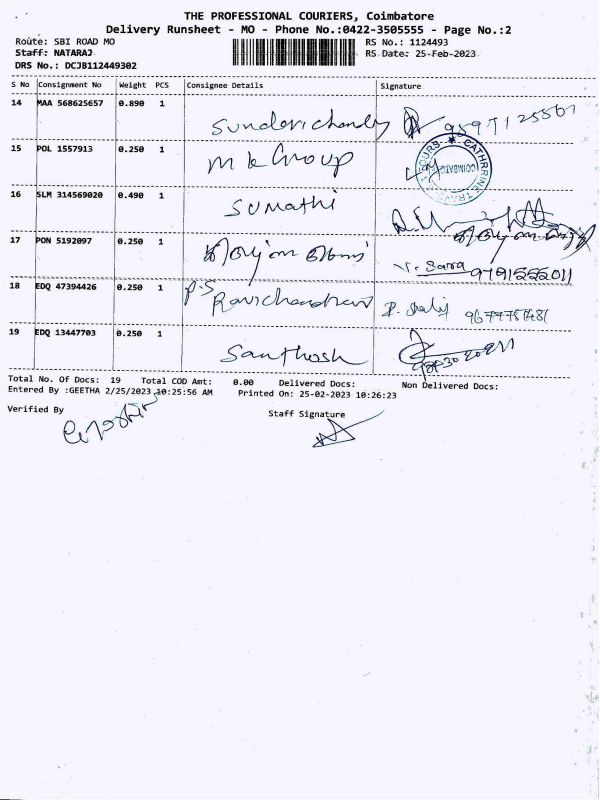 THE PROFESSIONAL COURIERS, Coimbatore
Delivery Runsheet - MO - Phone No.:0422-3505555 - Page No.:2
Route: SBI ROAD MO RS No.: 1124493
Staff: NATARAJ RS Date: 25-Feb-2023
DRS No.: DCJB112449302
S No Consignment No Weight PCS Consignee Details Signature
14 MAA 568625657 0.890 1
15 POL 1557913 0.250 1 M k Group
COIMBATORE
16 SLM 314569020 0.490 1 Sumathi
17 PON 5192097 0.250 1
9791555011
18 EDQ 47394426 0.250 1 P.S
Ravichandran
19 EDQ 13447703 0.250 1 Santhosh
Total No. Of Docs: 19 Total COD Amt: 0.00 Delivered Docs: Non Delivered Docs:
Entered By :GEETHA 2/25/2023 10:25:56 AM Printed On: 25-02-2023 10:26:23
Verified By Staff Signature